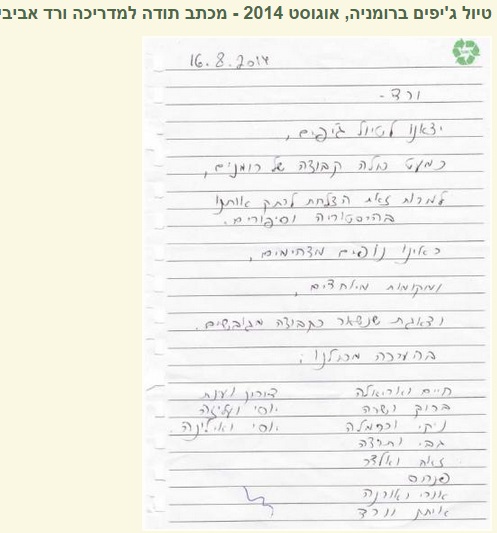 טיול ג'יפים ברומניה, אוגוסט 2014 - מכתב תודה למדריכה ורד אביבי
16.8.2014
ורד -
יצאנו לטיול ג'יפים,
כמעט כולה קבוצה של רומנים,
למרות זאת הצלחת לרתק אותנו
בהיסטוריה וסיפורים.
ראינו נופים מדהימים,
ומקומות מיוחדים,
ודאגת שנשאר כקבוצה מגובשים.
בהערכה מכולנו:
חיים ואוריאלה
ברוך ושרה
ניקי וכרמלה
גבי ותרצה
זאב
פנחס
אורי ואורנה
איתן וורד
דורון וענת
יוסי ועליזה
יוסי ואילינה